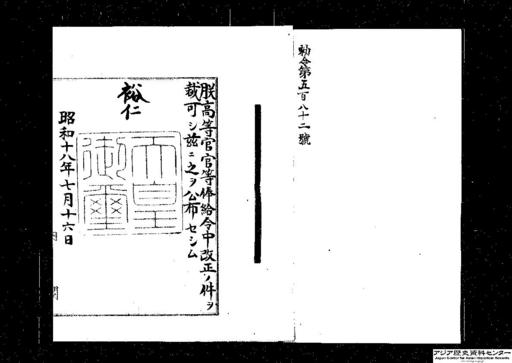 勅令第五百八十二號
朕高等官官等俸給令中改正ノ件ヲ
裁可シ玆ニ之ヲ公布セシム
裕仁
天皇
御璽
昭和十八年七月十六日
アジア歴史資料センター
Japan Center for Asian Historical Records